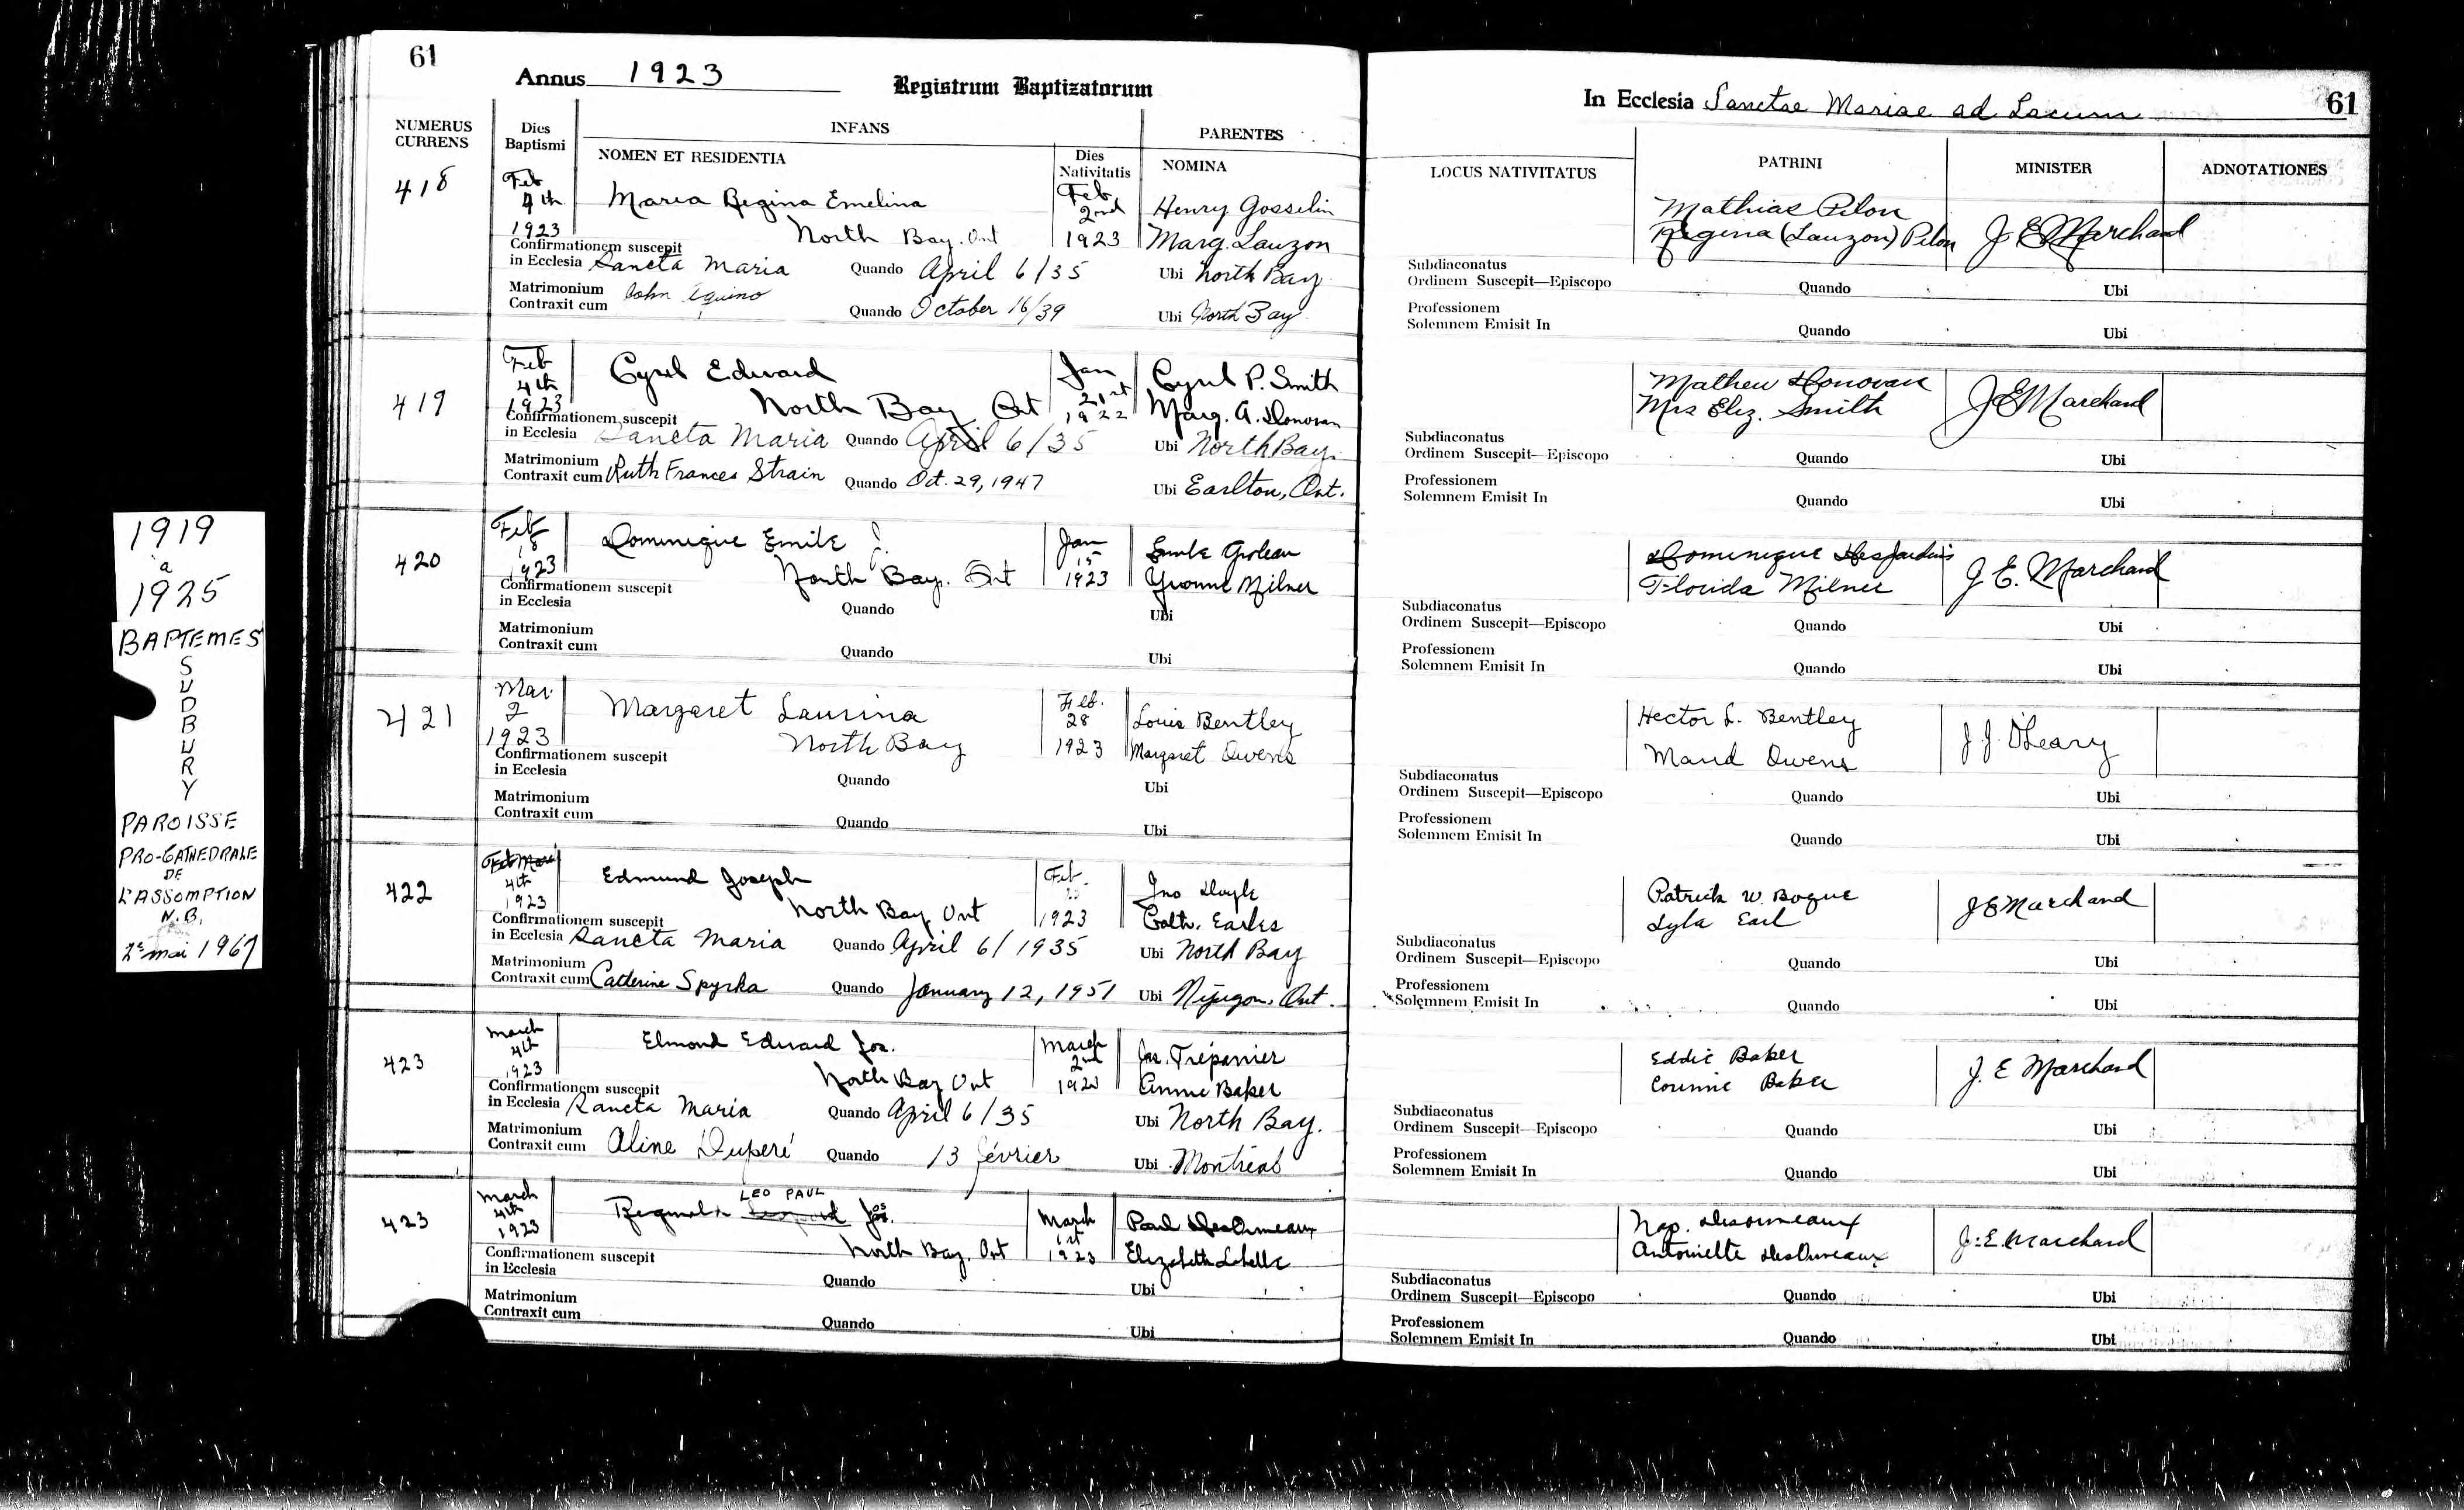 1919
à
1925
BAPTEMES
S
U
D
B
U
R
Y
PAROISSE
PRO-CATHEDRALE
DE
L'ASSOMPTION
N.B.
2e mai 1967
61
Annus 1923
Registrum Baptizatorum
NUMERUS CURRENS
Dies Baptismi
INFANS
NOMEN ET RESIDENTIA
Dies Nativitatis
PARENTES
NOMINA
418
Feb 4th 1923
Maria Regina Emelina
North Bay. Ont
Feb 2nd 1923
Henry Gosselin
Marg. Lauzon
Confirmationem suscepit
in Ecclesia Sancta Maria Quando April 6/35 Ubi North Bay
Matrimonium
Contraxit cum John Aquino Quando October 16/39 Ubi North Bay
419
Feb 4th 1923
Cyril Edward
North Bay Ont
Jan 21st 1922
Cyril P. Smith
Marg. A. Donovan
Confirmationem suscepit
in Ecclesia Sancta Maria Quando April 6/35 Ubi North Bay.
Matrimonium
Contraxit cum Ruth Frances Strain Quando Oct. 29, 1947 Ubi Earlton, Ont.
420
Feb 18 1923
Dominique Emile J.
North Bay. Ont
Jan 15 1923
Emile Groleau
Yvonne Milner
Confirmationem suscepit
in Ecclesia Quando Ubi
Matrimonium
Contraxit cum Quando Ubi
421
Mar 2 1923
Margaret Laurina
North Bay
Feb. 28 1923
Louis Bentley
Margaret Owens
Confirmationem suscepit
in Ecclesia Quando Ubi
Matrimonium
Contraxit cum Quando Ubi
422
Feb Mar 4th 1923
Edmund Joseph
North Bay Ont
Feb. 1923
Jno Doyle
Cath. Earles
Confirmationem suscepit
in Ecclesia Sancta Maria Quando April 6/1935 Ubi North Bay
Matrimonium
Contraxit cum Catherine Spyrka Quando January 12, 1951 Ubi Nipigon, Ont.
423
March 4th 1923
Elmond Edward Jos.
North Bay Ont
March 2nd 1923
Jas. Trépanier
Annie Baker
Confirmationem suscepit
in Ecclesia Sancta Maria Quando April 6/35 Ubi North Bay.
Matrimonium
Contraxit cum Aline Duperé Quando 13 février Ubi Montréal
423
March 4th 1923
LEO PAUL
Reginald Leonard Jos.
North Bay. Ont
March 1st 1923
Paul DesOrmeaux
Elizabeth Labelle
Confirmationem suscepit
in Ecclesia Quando Ubi
Matrimonium
Contraxit cum Quando Ubi
In Ecclesia Sanctae Mariae ad Lacum
61
LOCUS NATIVITATUS
PATRINI
MINISTER
ADNOTATIONES
Mathias Pilon
Regina (Lauzon) Pilon
J E Marchand
Subdiaconatus
Ordinem Suscepit—Episcopo Quando Ubi
Professionem
Solemnem Emisit In Quando Ubi
Mathew Donovan
Mrs Eliz. Smith
J E Marchand
Subdiaconatus
Ordinem Suscepit—Episcopo Quando Ubi
Professionem
Solemnem Emisit In Quando Ubi
Dominique DesJardins
Florida Milner
J E. Marchand
Subdiaconatus
Ordinem Suscepit—Episcopo Quando Ubi
Professionem
Solemnem Emisit In Quando Ubi
Hector L. Bentley
Maud Owens
J. J. O'Leary
Subdiaconatus
Ordinem Suscepit—Episcopo Quando Ubi
Professionem
Solemnem Emisit In Quando Ubi
Patrick W. Bogue
Lyla Earl
J E Marchand
Subdiaconatus
Ordinem Suscepit—Episcopo Quando Ubi
Professionem
Solemnem Emisit In Quando Ubi
Eddie Baker
Corinne Baker
J. E Marchand
Subdiaconatus
Ordinem Suscepit—Episcopo Quando Ubi
Professionem
Solemnem Emisit In Quando Ubi
Nap. Desormeaux
Antoinette DesOrmeaux
J. E. Marchand
Subdiaconatus
Ordinem Suscepit—Episcopo Quando Ubi
Professionem
Solemnem Emisit In Quando Ubi